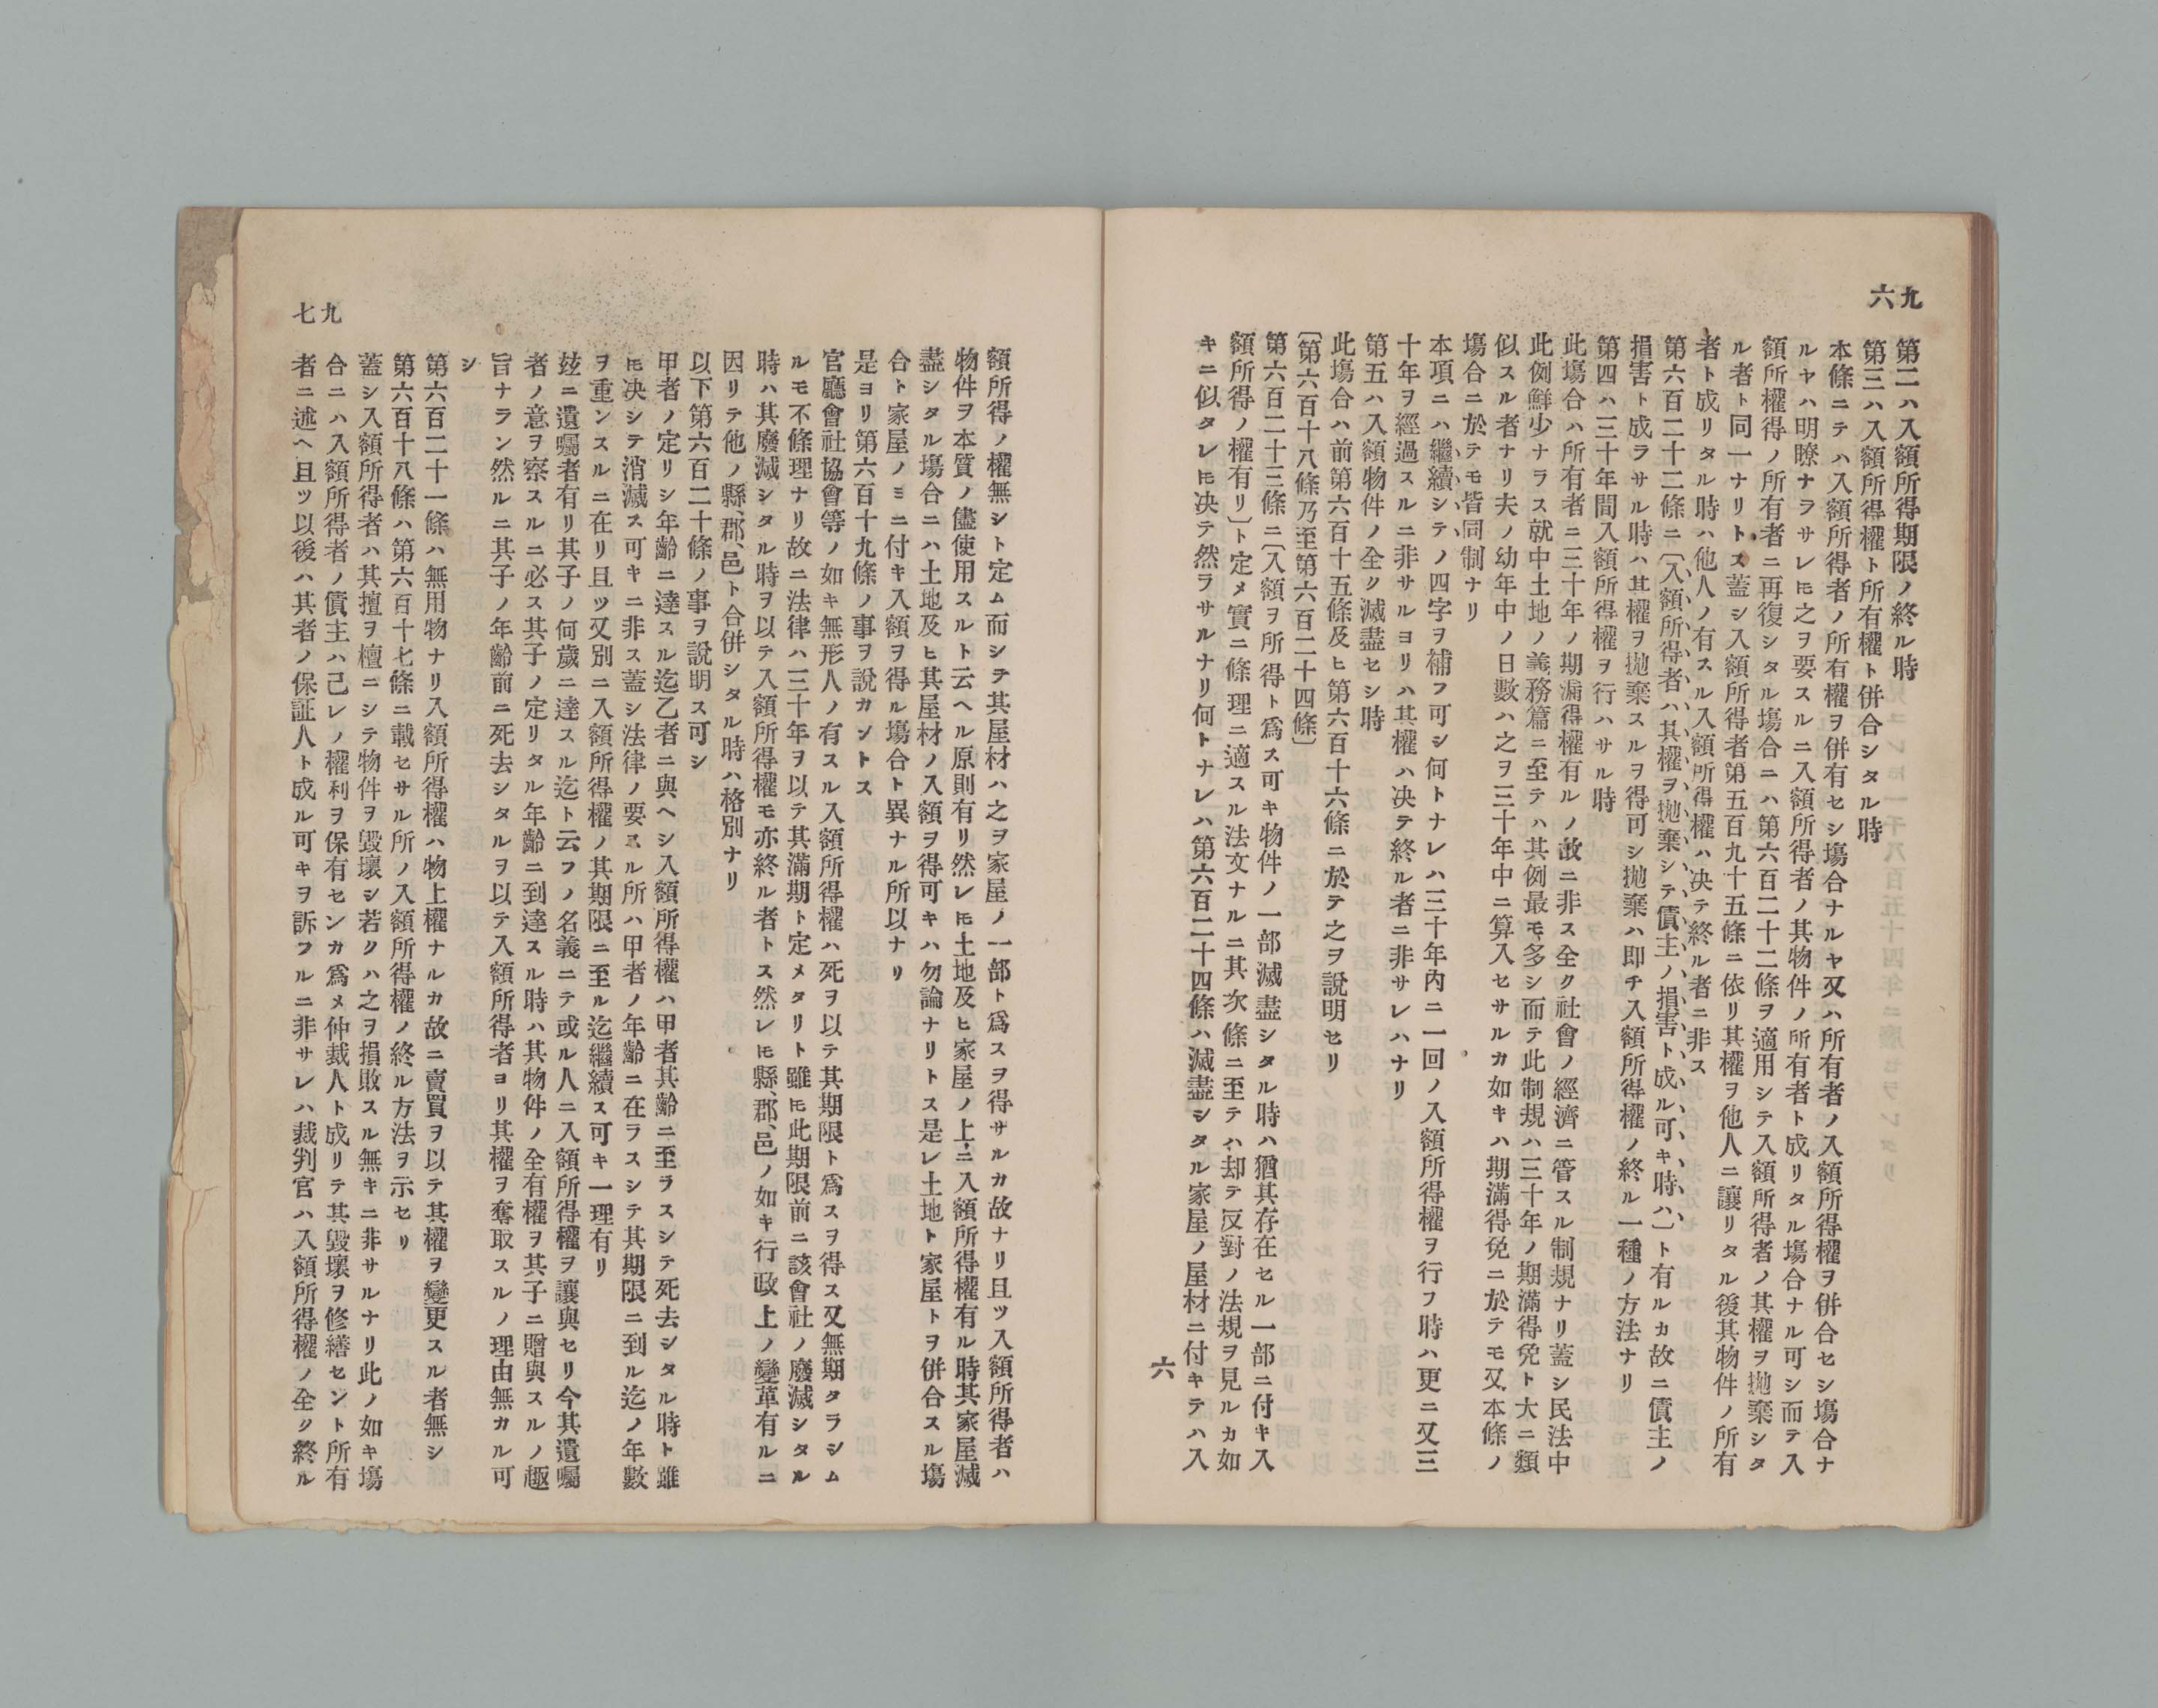 九六
第二ハ入額所得期限ノ終ル時
第三ハ入額所得權ト所有權ト併合シタル時
本條ニテハ入額所得者ノ所有權ヲ併有セシ塲合ナルヤ又ハ所有者ノ入額所得權ヲ併合セシ塲合ナ
ルヤハ明瞭ナラサレ𪜈之ヲ要スルニ入額所得者ノ其物件ノ所有者ト成リタル塲合ナル可シ而テ入
額所權得ノ所有者ニ再復シタル塲合ニハ第六百二十二條ヲ適用シテ入額所得者ノ其權ヲ抛棄シタ
ル者ト同一ナリトス蓋シ入額所得者第五百九十五條ニ依リ其權ヲ他人ニ讓リタル後其物件ノ所有
者ト成リタル時ハ他人ノ有スル入額所得權ハ决テ終ル者ニ非ス
第六百二十二條ニ〔入額所得者ハ其權ヲ抛棄シテ債主ノ損害ト成ル可キ時ハ〕ト有ルカ故ニ債主ノ
損害ト成ラサル時ハ其權ヲ抛棄スルヲ得可シ抛棄ハ即チ入額所得權ノ終ル一種ノ方法ナリ
第四ハ三十年間入額所得權ヲ行ハサル時
此塲合ハ所有者ニ三十年ノ期漏得權有ルノ故ニ非ス全ク社會ノ經濟ニ管スル制規ナリ蓋シ民法中
此例鮮少ナラス就中土地ノ義務篇ニ至テハ其例最モ多シ而テ此制規ハ三十年ノ期滿得免ト大ニ類
似スル者ナリ夫ノ幼年中ノ日數ハ之ヲ三十年中ニ算入セサルカ如キハ期滿得免ニ於テモ又本條ノ
塲合ニ於テモ皆同制ナリ
本項ニハ繼續シテノ四字ヲ補フ可シ何トナレハ三十年內ニ一回ノ入額所得權ヲ行フ時ハ更ニ又三
十年ヲ經過スルニ非サルヨリハ其權ハ决テ終ル者ニ非サレハナリ
第五ハ入額物件ノ全ク滅盡セシ時
此塲合ハ前第六百十五條及ヒ第六百十六條ニ於テ之ヲ說明セリ
〔第六百十八條乃至第六百二十四條〕
第六百二十三條ニ〔入額ヲ所得ト爲ス可キ物件ノ一部滅盡シタル時ハ猶其存在セル一部ニ付キ入
額所得ノ權有リ〕ト定メ實ニ條理ニ適スル法文ナルニ其次條ニ至テハ却テ反對ノ法規ヲ見ルカ如
キニ似タレ𪜈决テ然ラサルナリ何トナレハ第六百二十四條ハ滅盡シタル家屋ノ屋材ニ付キテハ入
六
額所得ノ權無シト定ム而シテ其屋材ハ之ヲ家屋ノ一部ト爲スヲ得サルカ故ナリ且ツ入額所得者ハ
物件ヲ本質ノ儘使用スルト云ヘル原則有リ然レ𪜈土地及ヒ家屋ノ上ニ入額所得權有ル時其家屋滅
盡シタル塲合ニハ土地及ヒ其屋材ノ入額ヲ得可キハ勿論ナリトス是レ土地ト家屋トヲ併合スル塲
合ト家屋ノミニ付キ入額ヲ得ル塲合ト異ナル所以ナリ
是ヨリ第六百十九條ノ事ヲ說カントス
官廳會社協會等ノ如キ無形人ノ有スル入額所得權ハ死ヲ以テ其期限ト爲スヲ得ス又無期タラシム
ルモ不條理ナリ故ニ法律ハ三十年ヲ以テ其滿期ト定メタリト雖𪜈此期限前ニ該會社ノ廢滅シタル
時ハ其廢滅シタル時ヲ以テ入額所得權モ亦終ル者トス然レ𪜈縣、郡、邑ノ如キ行政上ノ變革有ルニ
因リテ他ノ縣、郡、邑ト合併シタル時ハ格別ナリ
以下第六百二十條ノ事ヲ說明ス可シ
甲者ノ定リシ年齡ニ達スル迄乙者ニ與ヘシ入額所得權ハ甲者其齡ニ至ラスシテ死去シタル時ト雖
𪜈决シテ消滅ス可キニ非ス蓋シ法律ノ要スル所ハ甲者ノ年齡ニ在ラスシテ其期限ニ到ル迄ノ年數
ヲ重ンスルニ在リ且ツ又別ニ入額所得權ノ其期限ニ至ル迄繼續ス可キ一理有リ
玆ニ遺囑者有リ其子ノ何歲ニ達スル迄ト云フノ名義ニテ或ル人ニ入額所得權ヲ讓與セリ今其遺囑
者ノ意ヲ察スルニ必ス其子ノ定リタル年齡ニ到達スル時ハ其物件ノ全有權ヲ其子ニ贈與スルノ趣
旨ナラン然ルニ其子ノ年齡前ニ死去シタルヲ以テ入額所得者ヨリ其權ヲ奪取スルノ理由無カル可
シ
第六百二十一條ハ無用物ナリ入額所得權ハ物上權ナルカ故ニ賣買ヲ以テ其權ヲ變更スル者無シ
第六百十八條ハ第六百十七條ニ載セサル所ノ入額所得權ノ終ル方法ヲ示セリ
蓋シ入額所得者ハ其擅ヲ檀ニシテ物件ヲ毀壞シ若クハ之ヲ損敗スル無キニ非サルナリ此ノ如キ塲
合ニハ入額所得者ノ債主ハ己レノ權利ヲ保有センカ爲メ仲裁人ト成リテ其毀壞ヲ修繕セント所有
者ニ述ヘ且ツ以後ハ其者ノ保証人ト成ル可キヲ訴フルニ非サレハ裁判官ハ入額所得權ノ全ク終ル
九七